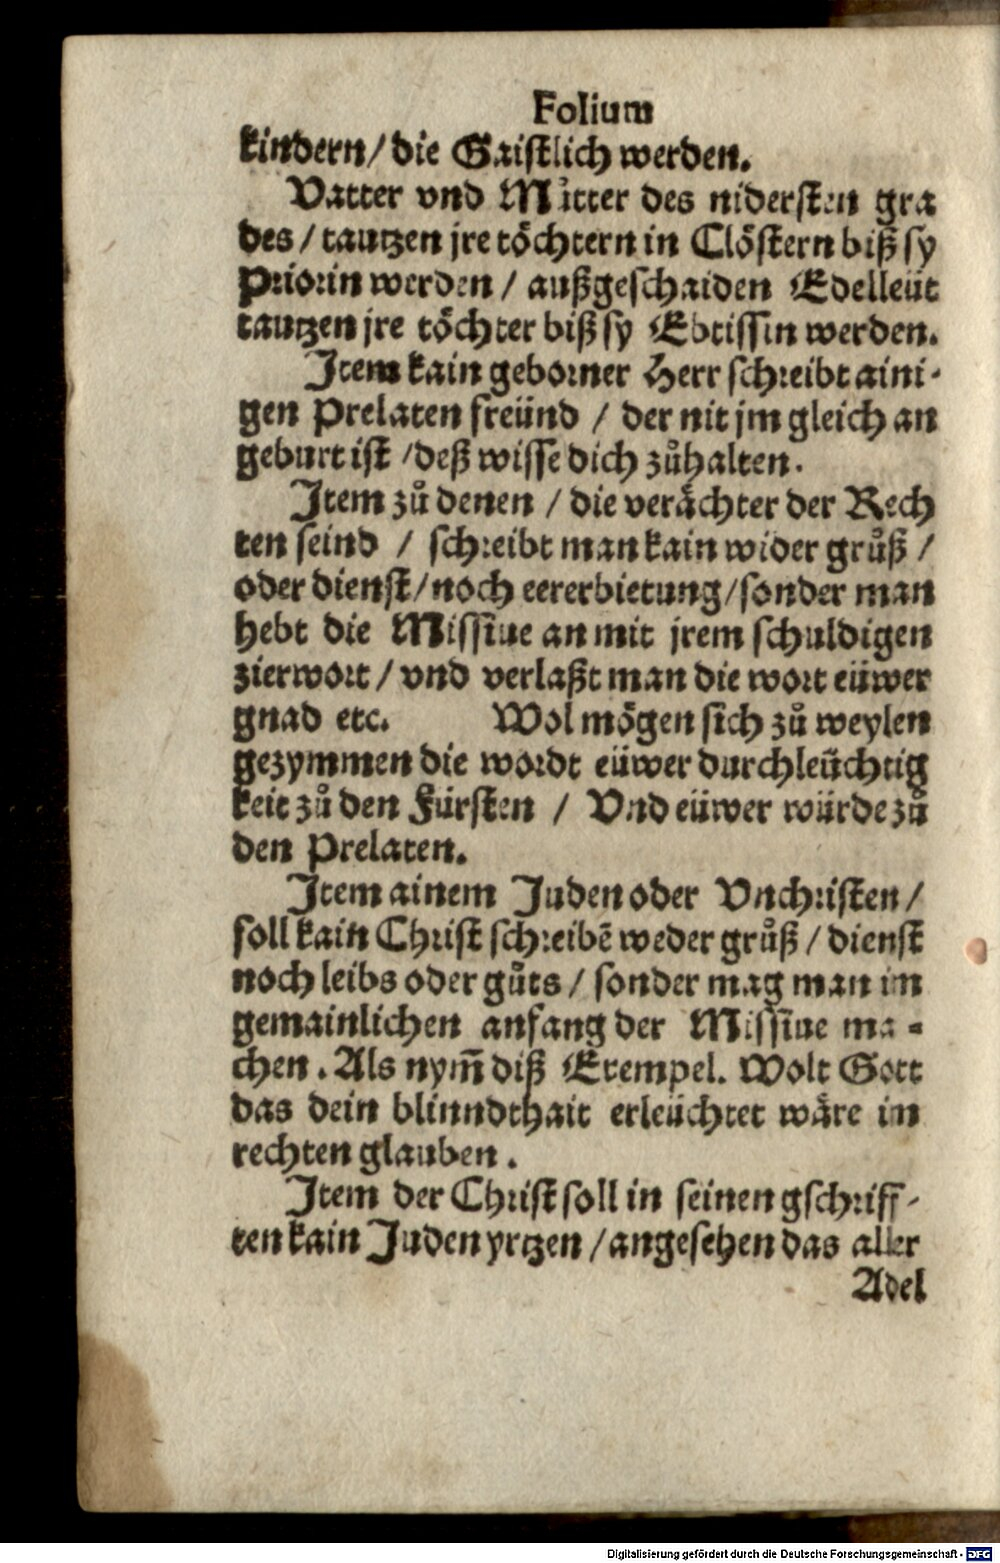 Folium
kindern/ die Gaistlich werden.
Vatter vnd Můtter des nidersten gra
des / tautzen jre töchtern in Clöstern biß sy
Priorin werden / außgeschaiden Edelleüt
tautzen jre töchter biß sy Ebtissin werden.
Item kain geborner Herr schreibt aini-
gen Prelaten freünd / der nit jm gleich an
geburt ist /deß wisse dich zůhalten.
Item zů denen / die verächter der Rech
ten seind / schreibt man kain wider grůß /
oder dienst/noch eererbietung/sonder man
hebt die Missiue an mit jrem schuldigen
zierwort / vnd verlaßt man die wort eüwer
gnad etc. Wol mögen sich zů weylen
gezymmen die wordt eüwer durchleüchtig
keit zů den Fürsten / Vnd eüwer würde zů
den Prelaten.
Item ainem Juden oder Vnchristen /
soll kain Christ schreibē weder grůß / dienst
noch leibs oder gůts / sonder mag man im
gemainlichen anfang der Missiue ma-
chen. Als nym̄ diß Exempel. Wolt Gott
das dein blinndthait erleüchtet wäre in
rechten glauben.
Item der Christ soll in seinen gschriff-
ten kain Juden yrtzen / angesehen das aller
Adel
Digitalisierung gefördert durch die Deutsche Forschungsgemeinschaft - DFG